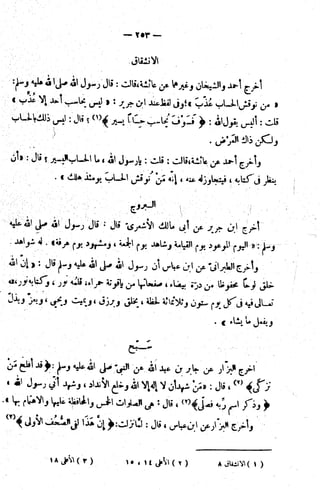 — ٢٥٣ —
الانشقاق
أخرج أحمد والشيخان وغيرهما عن عائشة، قالت : قال رسول الله صلى الله عليه وسلم:
« من نوقش الحساب عُذّبَ » ، وفى لفظ عند ابن جرير : « ليس يحاسب أحد إلا عُذّب »
قلت : أليس يقول الله : ﴿ فَسَوْفَ يُحَاسَبُ حِسَابًا يَسِيراً ﴾(١) ؟ قال : ليس ذلك بالحساب
ولكن ذاك العَرْض .
وأخرج أحمد عن عائشة، قالت : قلت : يارسول الله ، ما الحساب اليسير ؟ قال : « أن
ينظر فى كتابه ، فيتجاوز له عنه ، إنّه مَنْ نُوقش الحساب يومئذ هلك » .
البروج
أخرج ابن جرير عن أبى مالك الأشعرىّ قال : قال رسول الله صلى الله عليه
وسلم : « اليوم الموعود يوم القيامة وشاهد يوم الجمعة ، ومشهود يوم عرفة » . له شواهد .
وأخرج الطبرانىّ عن ابن عباس أن رسول الله صلى الله عليه وسلم قال : « إن الله
خلق لوحًا محفوظًا من درّة بيضاء ، صفحاتها من ياقوتة حمراء، قلمه نور ، وكتابه نور، لله
تعالى فيه فى كل يوم ستون وثلاثمائة لحظة ، يخلق ويرزق ، ويميت ويحيى ، ويعزّ ويذلّ
ويفعل ما يشاء » .
سَبّح
أخرج البزّار عن جابر بن عبد الله عن النبىّ صلى الله عليه وسلم : ﴿ قد أفلح مَنْ
تزكّى ﴾(٢) ، قال : « مَنْ شهد أن لا إله إلا الله وخلع الأنداد ، وشهد أنى رسول الله » ،
﴿ وذكر اسم ربه فصلّى ﴾(٢) ، قال : هى الصلوات الخمس والمحافظة عليها والاهتمام بها » .
وأخرج البزار عن ابن عباس ، قال : لما نزلت: ﴿ إنَّ هَذَا لَفِى الصُّحُفِ الأولى ﴾(٣)
( ١ ) الانشقاق ٨ ( ٢ ) الأعلى ١٤ ، ١٥ ( ٣ ) الأعلى ١٨